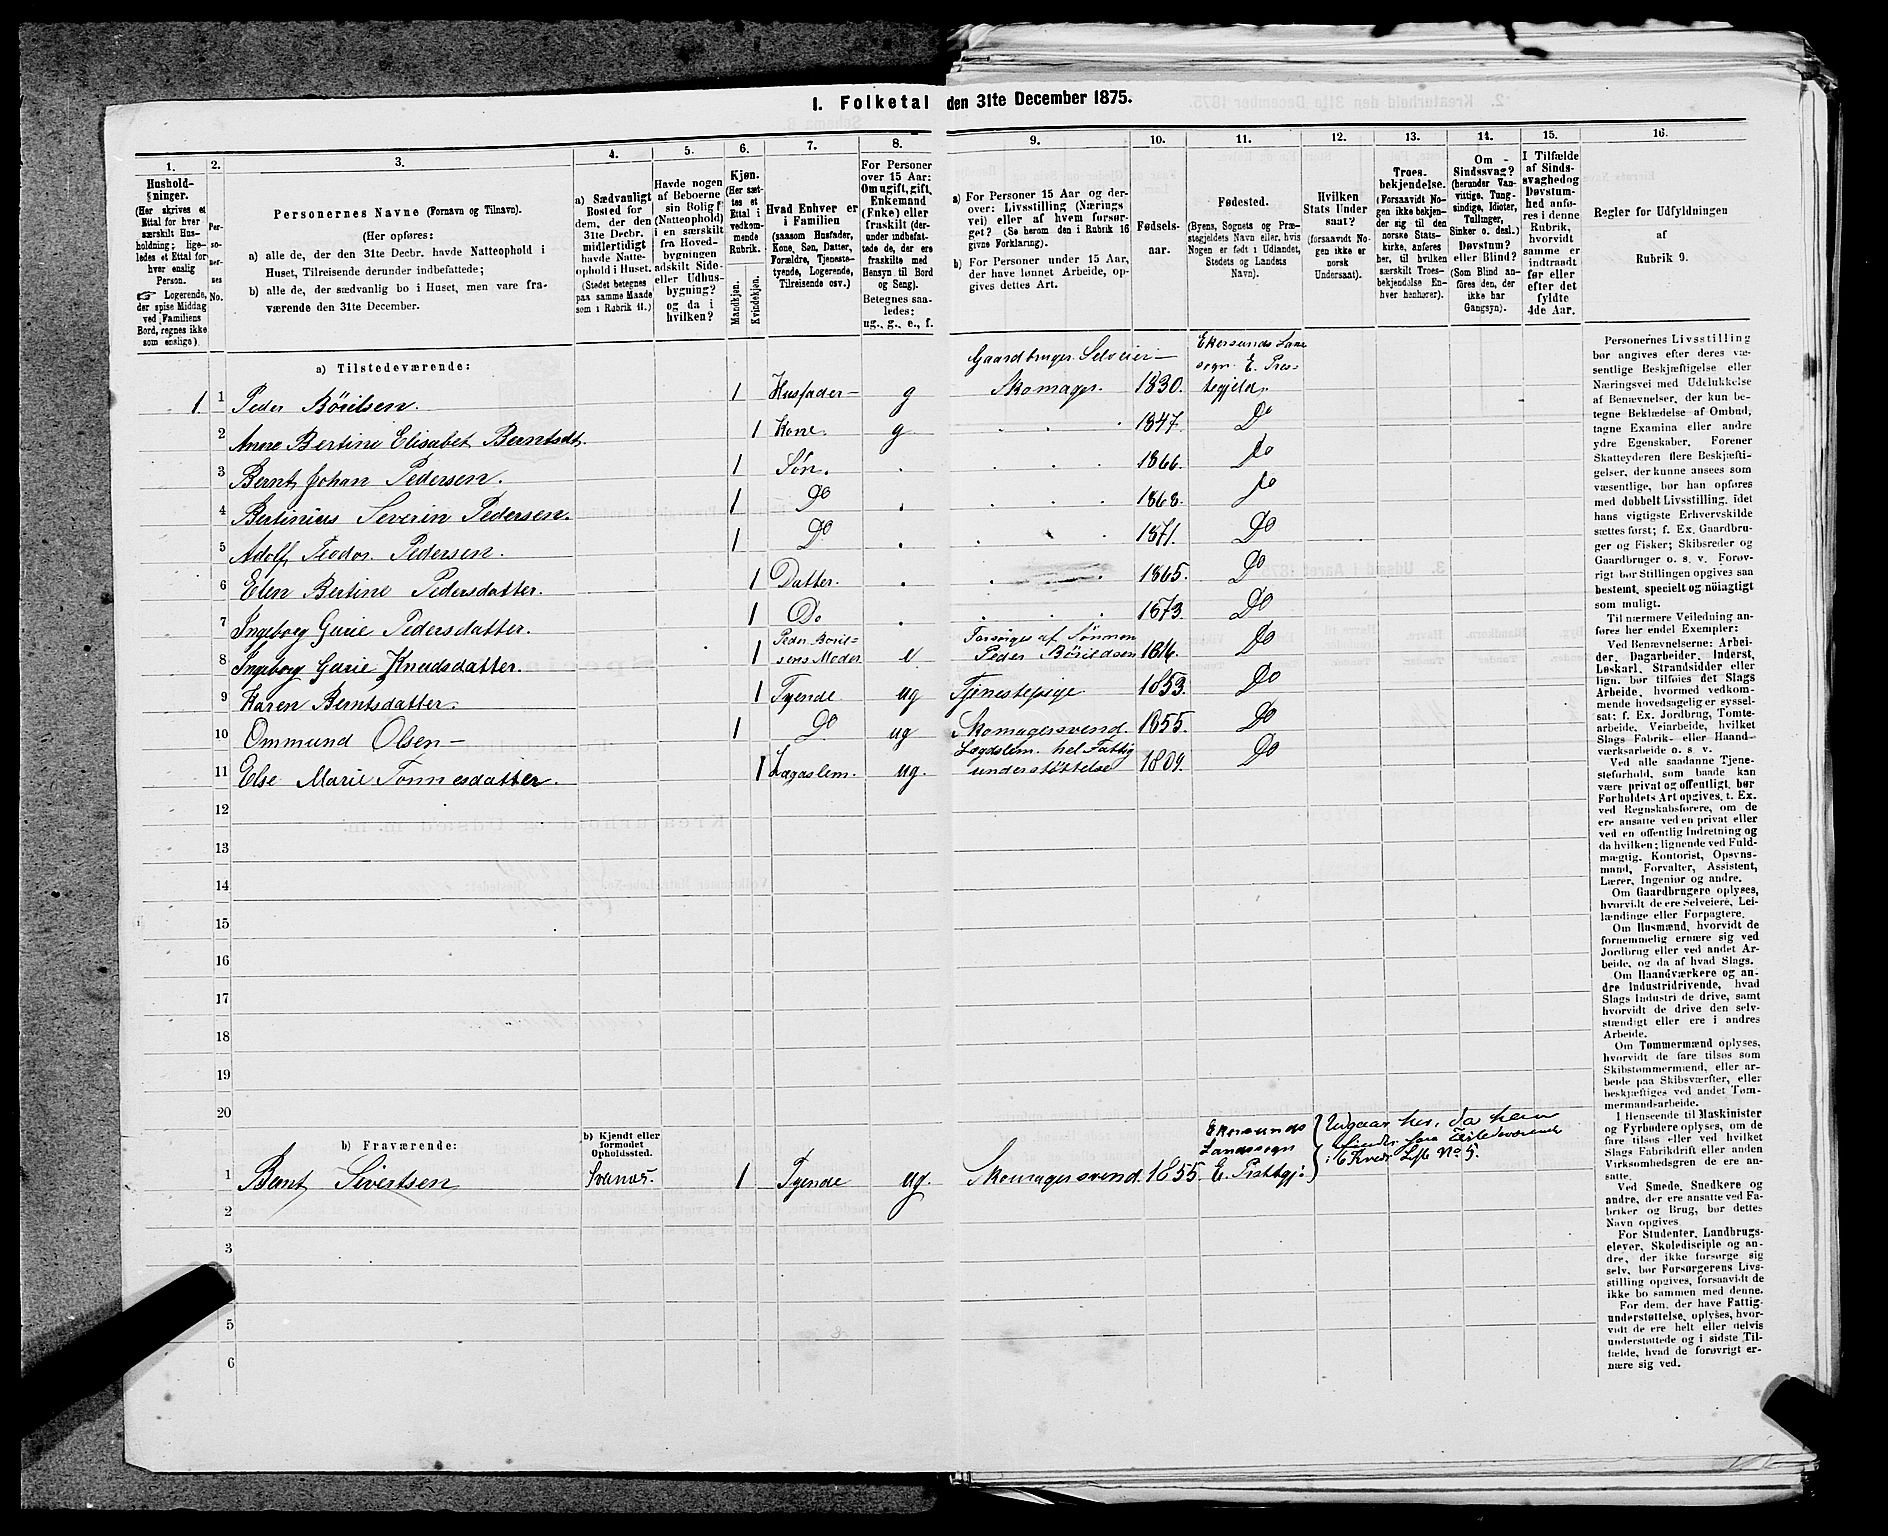 1. Folketal den 31te December 1875.
1. 2. 3. 4. 5. 6. 7. 8. 9. 10. 11. 12. 13. 14. 15. 16.
Hushold-
ninger.
(Her skrives et
Ettal for hver
særskilt Hus-
holdning; lige-
ledes et Ettal for
hver enslig
Person.
☞ Logerende,
der spise Middag
ved Familiens
Bord, regnes ikke
som enslige).
Per-
so-
ner-
nes
No.
Personernes Navne (Fornavn og Tilnavn).
(Her opføres:
a) alle de, der den 31te Decbr. havde Natteophold i
Huset, Tilreisende derunder indbefattede;
b) alle de, der sædvanlig bo i Huset, men vare fra-
værende den 31te December.
a) Sædvanligt
Bosted for
dem, der den
31te Decbr.
midlertidigt
havde Natte-
ophold i Huset.
(Stedet betegnes
paa samme Maade
som i Rubrik 11.)
Havde nogen
af Beboerne
sin Bolig
(Natteophold)
i en særskilt
fra Hoved-
bygningen
adskilt Side-
eller Udhus-
bygning?
og da i
hvilken?
Kjøn.
(Her sæt-
tes et
Ettal i
vedkom-
mende
Rubrik.
Mandkjøn.
Kvindekjøn.
Hvad Enhver er
i Familien
(saasom Husfader,
Kone, Søn, Datter,
Forældre, Tjeneste-
tyende, Logerende,
Tilreisende osv.)
For Personer
over 15 Aar:
Om ugift, gift,
Enkemand
(Enke) eller
fraskilt (der-
under indbefat-
tede de, der ere
fraskilte med
Hensyn til Bord
og Seng).
Betegnes saa-
ledes:
ug., g., e., f.
a) For Personer 15 Aar og der-
over: Livsstilling (Nærings-
vei) eller af hvem forsør-
get? (Se herom den i Rubrik 16
givne Forklaring).
b) For Personer under 15 Aar,
der have lønnet Arbeide, op-
gives dettes Art.
Fødsels-
aar.
Fødested.
(Byens, Sognets og Præ-
stegjeldets Navn eller, hvis
Nogen er født i Udlandet,
Stedets og Landets
Navn).
Hvilken
Stats Under
saat?
(forsaavidt No-
gen ikke er
norsk
Undersaat).
Troes-
bekjendelse.
(Forsaavidt No-
gen ikke bekjen-
der sig til den
norske Stats-
kirke, anføres
her, til hvilken
særskilt Troes-
bekjendelse En-
hver henhører).
Om
Sindssvag?
(herunder Van-
vittige, Tung-
sindige, Idioter,
Tullinger,
Sinker o. desl.)
Døvstum?
eller Blind?
(Som Blind an-
føres den, der
ikke har
Gangsyn).
I Tilfælde
af Sinds-
svaghed og
Døvstum-
hed anfø-
res i denne
Rubrik,
hvorvidt
samme er
indtraadt
før eller
efter det
fyldte
4de Aar.
Regler for Udfyldningen
af
Rubrik 9.
a) Tilstedeværende:
Gaardbruger Selveier
Ekersunds Land
sogn E. Præs-
1 1 Peder Börilsen. 1 Husfader g Skomager. 1830. tegjeld.
2 Anne Bertine Elisabet Berntsdt. 1 Kone. g 1847. Do
3 Bernt Johan Pedersen. 1 Søn. 1866. Do
4 Bertinius Severin Pedersen. 1 Do 1868. Do
5 Adolf Teodor Pedersen 1 Do 1871. Do
6 Elen Bertine Pedersdatter. 1 Datter. 1865. Do
7 Ingeborg Gurie Pedersdatter. 1 Do 1873. Do
8 Ingeborg Gurie Knudsdatter. 1 Peder Böril-
sens Moder e Forsörges af Sönnen
Peder Börildsen 1816. Do
9 Karen Berntsdatter. 1 Tyende ug Tjenestepige 1853. Do
10 Ommund Olsen 1 Do ug Skomagersvend. 1855. Do
11 Else Marie Tönnesdatter. 1 Lægdslem. ug. Lægdslem. hel Fattig
understöttelse 1809. Do
12
13
14
15
16
17
18
19
20
b) Fraværende:
b) Kjendt eller
formodet
Opholdssted.
Ekersunds
Landsogn
Udgaar her, da han
findes som Tilstedeværende
i 6 Kreds Lste No 5.
1 Bent Sivertsen 1 Tyende ug. Skomagersvend. 1855. E. Prstgj.
2
3
5
6
Personernes Livsstilling
bør angives efter deres væ-
sentlige Beskjæftigelse eller
Næringsvei med Udelukkelse
af Benævnelser, der kun be-
tegne Beklædelse af Ombud,
tagne Examina eller andre
ydre Egenskaber. Forener
Skatteyderen flere Beskjæfti-
gelser, der kunne ansees som
væsentlige, bør han opføres
med dobbelt Livsstilling, idet
hans vigtigste Erhvervskilde
sættes først; f. Ex. Gaardbru-
ger og Fisker; Skibsreder og
Gaardbruger o. s. v. Forøv-
rigt bør Stillingen opgives saa
bestemt, specielt og nöiagtigt
som muligt.
Til nærmere Veiledning an-
føres her endel Exempler:
Ved Benævnelserne: Arbei-
der, Dagarbeider, Inderst,
Løskarl, Strandsidder eller
lign. bør tilføies det Slags
Arbeide, hvormed vedkom-
mende hovedsagelig er syssel-
sat; f. Ex. Jordbrug, Tomte-
arbeide, Veiarbeide, hvilket
Slags Fabrik- eller Haand-
værksarbeide o. s. v.
Ved alle saadanne Tjene-
steforhold, som baade kan
være privat og offentligt, bør
Forholdets Art opgives, t. Ex.
ved Regnskabsførere, om de
ere ansatte ved en privat eller
ved en offentlig Indretning og
da hvilken; lignende ved Fuld-
mægtig, Kontorist, Opsyns-
mand, Forvalter, Assistent,
Lærer, Ingeniør og andre.
Om Gaardbrugere oplyses,
hvorvidt de ere Selveiere, Lei-
lændinge eller Forpagtere.
Om Husmænd, hvorvidt de
fornemmelig ernære sig ved
Jordbrug eller ved andet Ar-
beide, og da af hvad Slags.
Om Haandværkere og an-
dre Industridrivende, hvad
Slags Industri de drive, samt
hvorvidt de drive den selv-
stændigt eller ere i andres
Arbeide.
Om Tømmermænd oplyses,
hvorvidt de fare tilsøs som
Skibstømmermænd, eller ar-
beide paa Skibsværfter, eller
beskjæftiges ved andet Tøm-
mermandsarbeide.
I Henseende til Maskinister
og Fyrbødere oplyses, om de
fare tilsøs eller ved hvilket
Slags Fabrikdrift eller anden
Virksomhedsgren de ere an-
satte.
Ved Smede, Snedkere og
andre, der ere ansatte ved Fa-
briker og Brug, bør dettes
Navn opgives.
For Studenter, Landbrugs-
elever, Skoledisciple og an-
dre, der ikke forsørge sig
selv, bør Forsørgerens Livs-
stilling opgives, forsaavidt de
ikke bo sammen med denne.
For dem, der have Fattig-
understøttelse, oplyses, hvor-
vidt de ere helt eller delvis
understøttede og i sidste Til-
fælde, hvad de forøvrigt er-
nære sig ved.